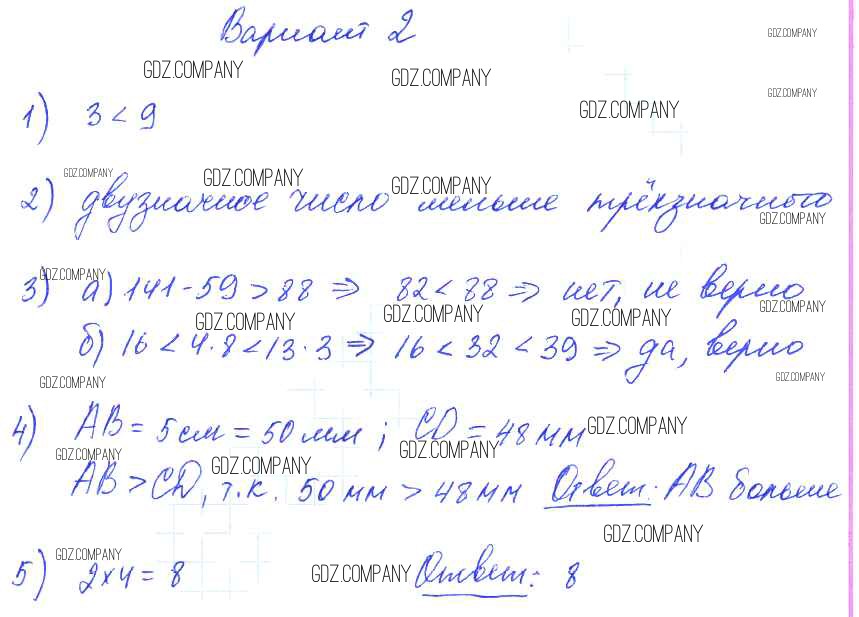 Вариант 2
GDZ.COMPANY
GDZ.COMPANY GDZ.COMPANY
GDZ.COMPANY
GDZ.COMPANY
1) 3 < 9
GDZ.COMPANY GDZ.COMPANY GDZ.COMPANY
2) двузначное число меньше трёхзначного
GDZ.COMPANY
GDZ.COMPANY
3) а) 141 - 59 > 88 ⇒ 82 < 88 ⇒ нет, не верно
GDZ.COMPANY GDZ.COMPANY GDZ.COMPANY GDZ.COMPANY
б) 16 < 4 · 8 < 13 · 3 ⇒ 16 < 32 < 39 ⇒ да, верно
GDZ.COMPANY GDZ.COMPANY
4) АВ = 5 см = 50 мм ; CD = 48 мм GDZ.COMPANY
GDZ.COMPANY GDZ.COMPANY GDZ.COMPANY
АВ > CD, т.к. 50 мм > 48 мм Ответ: АВ больше
GDZ.COMPANY
GDZ.COMPANY
5) 2 × 4 = 8 GDZ.COMPANY Ответ: 8